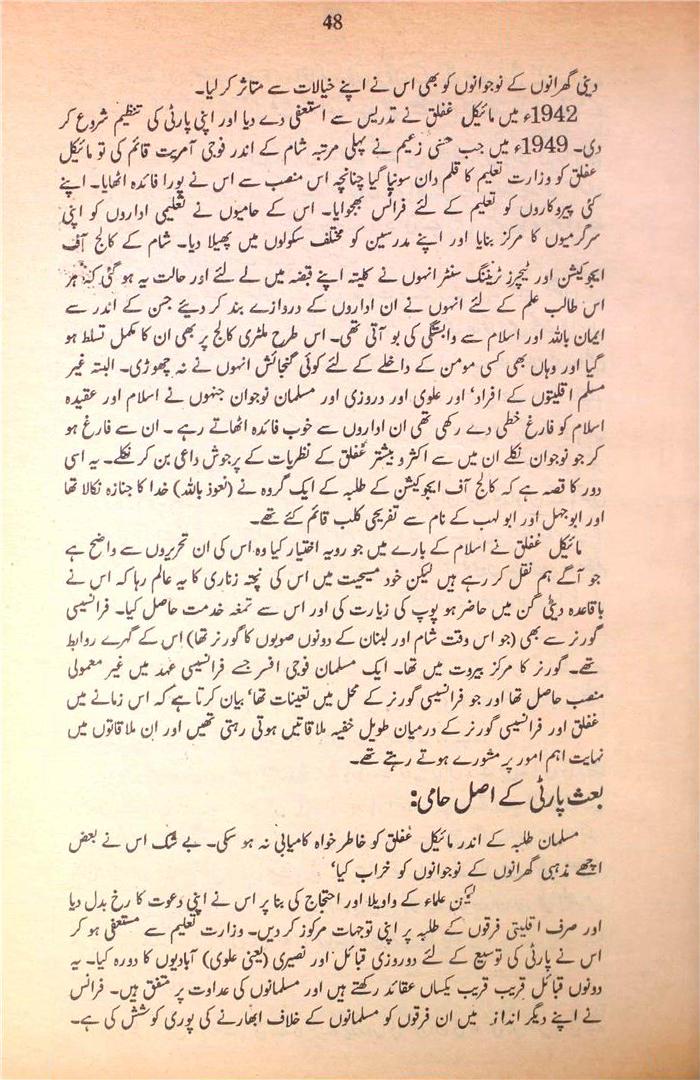 48
دینی گھرانوں کے نوجوانوں کو بھی اس نے اپنے خیالات سے متاثر کر لیا۔
1942ء میں مائیکل عفلق نے تدریس سے استعفی دے دیا اور اپنی پارٹی کی تنظیم شروع کر
دی۔ 1949ء میں جب حسنی زعیم نے پہلی مرتبہ شام کے اندر فوجی آمریت قائم کی تو مائیکل
عفلق کو وزارت تعلیم کا قلم دان سونپا گیا چنانچہ اس منصب سے اس نے پورا فائدہ اٹھایا۔ اپنے
کئی پیروکاروں کو تعلیم کے لئے فرانس بھجوایا۔ اس کے حامیوں نے تعلیمی اداروں کو اپنی
سرگرمیوں کا مرکز بنایا اور اپنے مدرسین کو مختلف سکولوں میں پھیلا دیا۔ شام کے کالج آف
ایجوکیشن اور ٹیچرز ٹریننگ سنٹر انہوں نے کلیتہ اپنے قبضہ میں لے لئے اور حالت یہ ہو گئی کہ ہر
اس طالب علم کے لئے انہوں نے ان اداروں کے دروازے بند کر دیئے جن کے اندر سے
ایمان باللہ اور اسلام سے وابستگی کی بو آتی تھی۔ اس طرح ملٹری کالج پر بھی ان کا مکمل تسلط ہو
گیا اور وہاں بھی کسی مومن کے داخلے کے لئے کوئی گنجائش انہوں نے نہ چھوڑی۔ البتہ غیر
مسلم اقلیتوں کے افراد، اور علوی اور دروزی اور مسلمان نوجوان جنہوں نے اسلام اور عقیدہ
اسلام کو فارغ خطی دے رکھی تھی ان اداروں سے خوب فائدہ اٹھاتے رہے۔ ان سے فارغ ہو
کر جو نوجوان نکلے ان میں سے اکثر و بیشتر عفلق کے نظریات کے پرجوش داعی بن کر نکلے۔ یہ اسی
دور کا قصہ ہے کہ کالج آف ایجوکیشن کے طلبہ کے ایک گروہ نے (نعوذ باللہ) خدا کا جنازہ نکالا تھا
اور ابوجہل اور ابو لہب کے نام سے تفریحی کلب قائم کئے تھے۔
مائیکل عفلق نے اسلام کے بارے میں جو رویہ اختیار کیا وہ اس کی ان تحریروں سے واضح ہے
جو آگے ہم نقل کر رہے ہیں لیکن خود مسیحیت میں اس کی پختہ زناری کا یہ عالم رہا کہ اس نے
باقاعدہ ویٹی گن میں حاضر ہو پوپ کی زیارت کی اور اس سے تمغہ خدمت حاصل کیا۔ فرانسیسی
گورنر سے بھی (جو اس وقت شام اور لبنان کے دونوں صوبوں کا گورنر تھا) اس کے گہرے روابط
تھے۔ گورنر کا مرکز بیروت میں تھا۔ ایک مسلمان فوجی افسر جسے فرانسیسی عہد میں غیر معمولی
منصب حاصل تھا اور جو فرانسیسی گورنر کے محل میں تعینات تھا، بیان کرتا ہے کہ اس زمانے میں
عفلق اور فرانسیسی گورنر کے درمیان طویل خفیہ ملاقاتیں ہوتی رہتی تھیں اور ان ملاقاتوں میں
نہایت اہم امور پر مشورے ہوتے رہتے تھے۔
بعث پارٹی کے اصل حامی:
مسلمان طلبہ کے اندر مائیکل عفلق کو خاطر خواہ کامیابی نہ ہو سکی۔ بے شک اس نے بعض
اچھے مذہبی گھرانوں کے نوجوانوں کو خراب کیا،
لیکن علماء کے واویلا اور احتجاج کی بنا پر اس نے اپنی دعوت کا رخ بدل دیا
اور صرف اقلیتی فرقوں کے طلبہ پر اپنی توجہات مرکوز کر دیں۔ وزارت تعلیم سے مستعفی ہو کر
اس نے پارٹی کی توسیع کے لئے دوروزی قبائل اور نصیری (یعنی علوی) آبادیوں کا دورہ کیا۔ یہ
دونوں قبائل قریب قریب یکساں عقائد رکھتے ہیں اور مسلمانوں کی عداوت پر متفق ہیں۔ فرانس
نے اپنے دیگر انداز میں ان فرقوں کو مسلمانوں کے خلاف ابھارنے کی پوری کوشش کی ہے۔